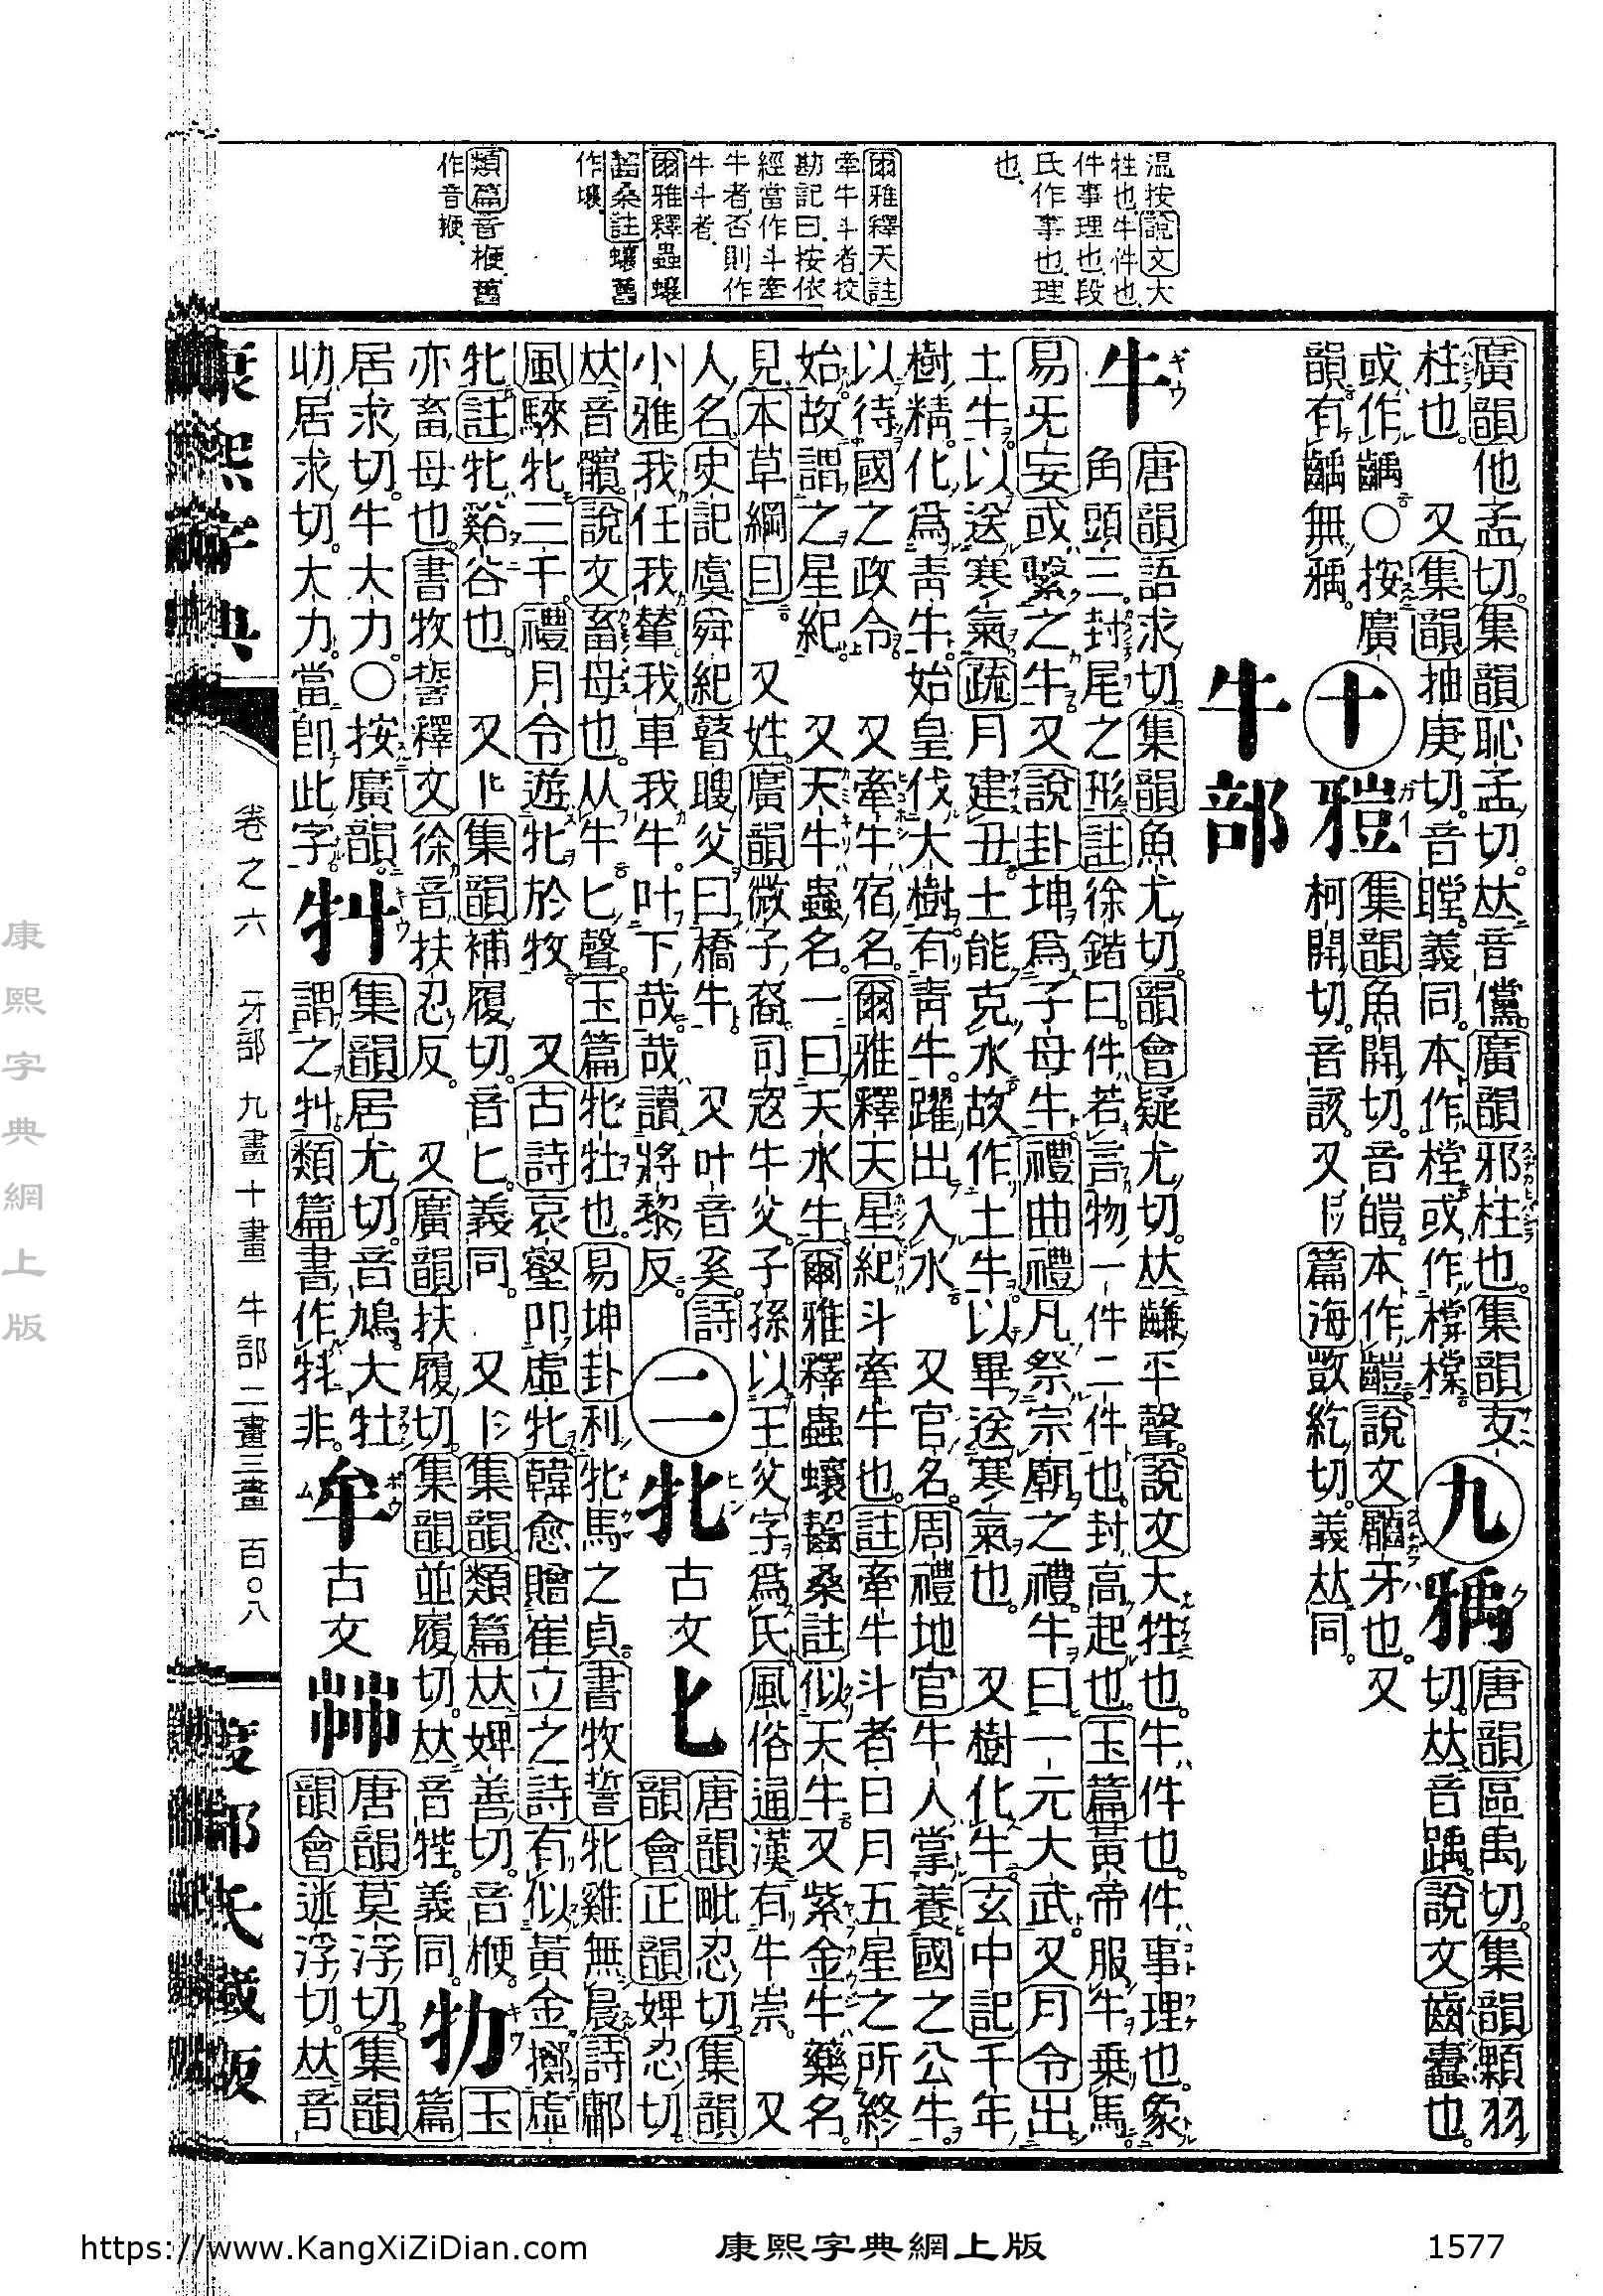 温按說文大
牲也牛件也
件事理也段
氏作事也理
也
爾雅釋天註
牽牛斗者校
勘記曰按依
經當作斗牽
牛者否則作
牛斗者
爾雅釋蟲蠰
齧桑註蠰舊
作壤
類篇音楩舊
作音鞭
廣韻他孟切集韻恥孟切𠀤音儻廣韻邪柱也集韻支
柱也 又集韻抽庚切音瞠義同本作樘或作橕
九
㺄
唐韻區禹切集韻顆羽
切𠀤音踽說文齒蠹也
或作齲○按廣
韻有齲無㺄
十
集韻魚開切音皚本作 說文 牙也又
柯開切音該又 篇海 紇切義𠀤同
牛部
牛
唐韻語求切集韻魚尤切韻會疑尤切𠀤 平聲說文大牲也牛件也件事理也象
角頭三封尾之形註徐鍇曰件若言物一件二件也封高起也玉篇黃帝服牛乘馬
易无妄或繫之牛又說卦坤爲子母牛禮曲禮凡祭宗廟之禮牛曰一元大武又月令出
土牛以送寒氣疏月建丑土能克水故作土牛以畢送寒氣也 又樹化牛玄中記千年
樹精化爲靑牛始皇伐大樹有靑牛躍出入水 又官名周禮地官牛人掌養國之公牛
以待國之政令 又牽牛宿名爾雅釋天星紀斗牽牛也註牽牛斗者日月五星之所終
始故謂之星紀 又天牛蟲名一曰天水牛爾雅釋蟲蠰齧桑註似天牛又紫金牛藥名
見本草綱目 又姓廣韻微子裔司寇牛父子孫以王父字爲氏風俗通漢有牛崇 又
人名史記虞舜紀瞽瞍父曰橋牛 又叶音奚詩
小雅我任我輦我車我牛叶下哉哉讀將黎反
二
牝
古文
匕
唐韻毗忍切集韻
韻會正韻婢忍切
𠀤音髕說文畜母也从牛匕聲玉篇牝牡也易坤卦利牝馬之貞書牧誓牝雞無晨詩鄘
風騋牝三千禮月令遊牝於牧 又古詩哀壑叩虛牝韓愈贈崔立之詩有似黃金擲虛
牝註牝谿谷也 又集韻補履切音匕義同 又集韻類篇𠀤婢善切音楩
亦畜母也書牧誓釋文徐音扶忍反 又廣韻扶履切集韻並履切𠀤音㹃義同
玉
篇
居求切牛大力○按廣韻
劜居求切大力當卽此字
集韻居尤切音鳩大牡
謂之 類篇書作 非
牟
古文
唐韻莫浮切集韻
韻會迷浮切𠀤音
康熙字典
卷之六 牙部 九畫 十畫 牛部 二畫 三畫 百〇八
渡部氏藏版
康熙字典網上版
https://www.KangXiZiDian.com
康熙字典網上版
1577